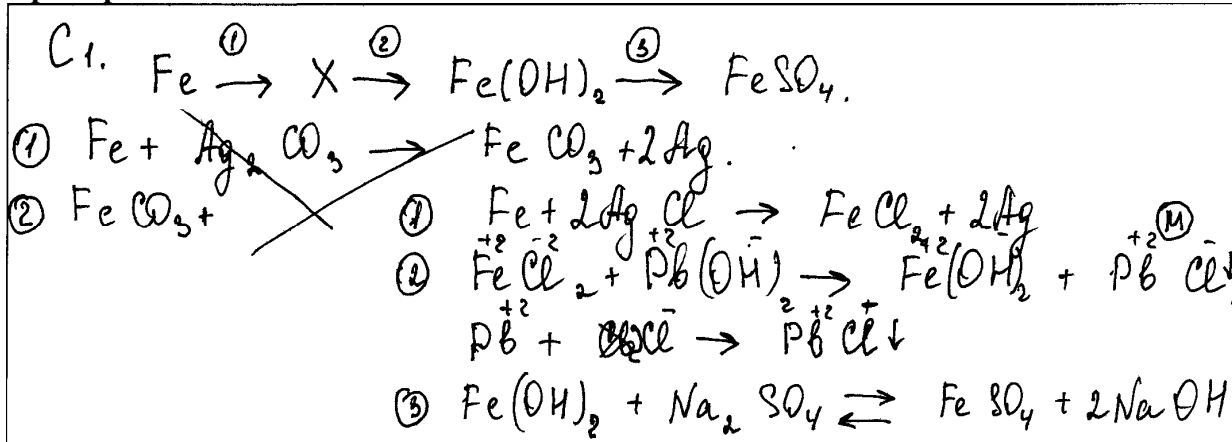 С1. Fe ①→ X ②→ Fe(OH)₂ ③→ FeSO₄.
① Fe + Ag₂CO₃ → FeCO₃ + 2Ag.
② FeCO₃ +
① Fe + 2AgCl → FeCl₂ + 2Ag Ⓜ
② Fe⁺²Cl⁻²₂ + Pb⁺²(OH⁻)₂ → Fe⁺²(OH⁻)₂ + Pb⁺²Cl⁻↓
Pb⁺² + Cl⁻ → Pb⁺²Cl↓
③ Fe(OH)₂ + Na₂SO₄ ⇄ FeSO₄ + 2NaOH